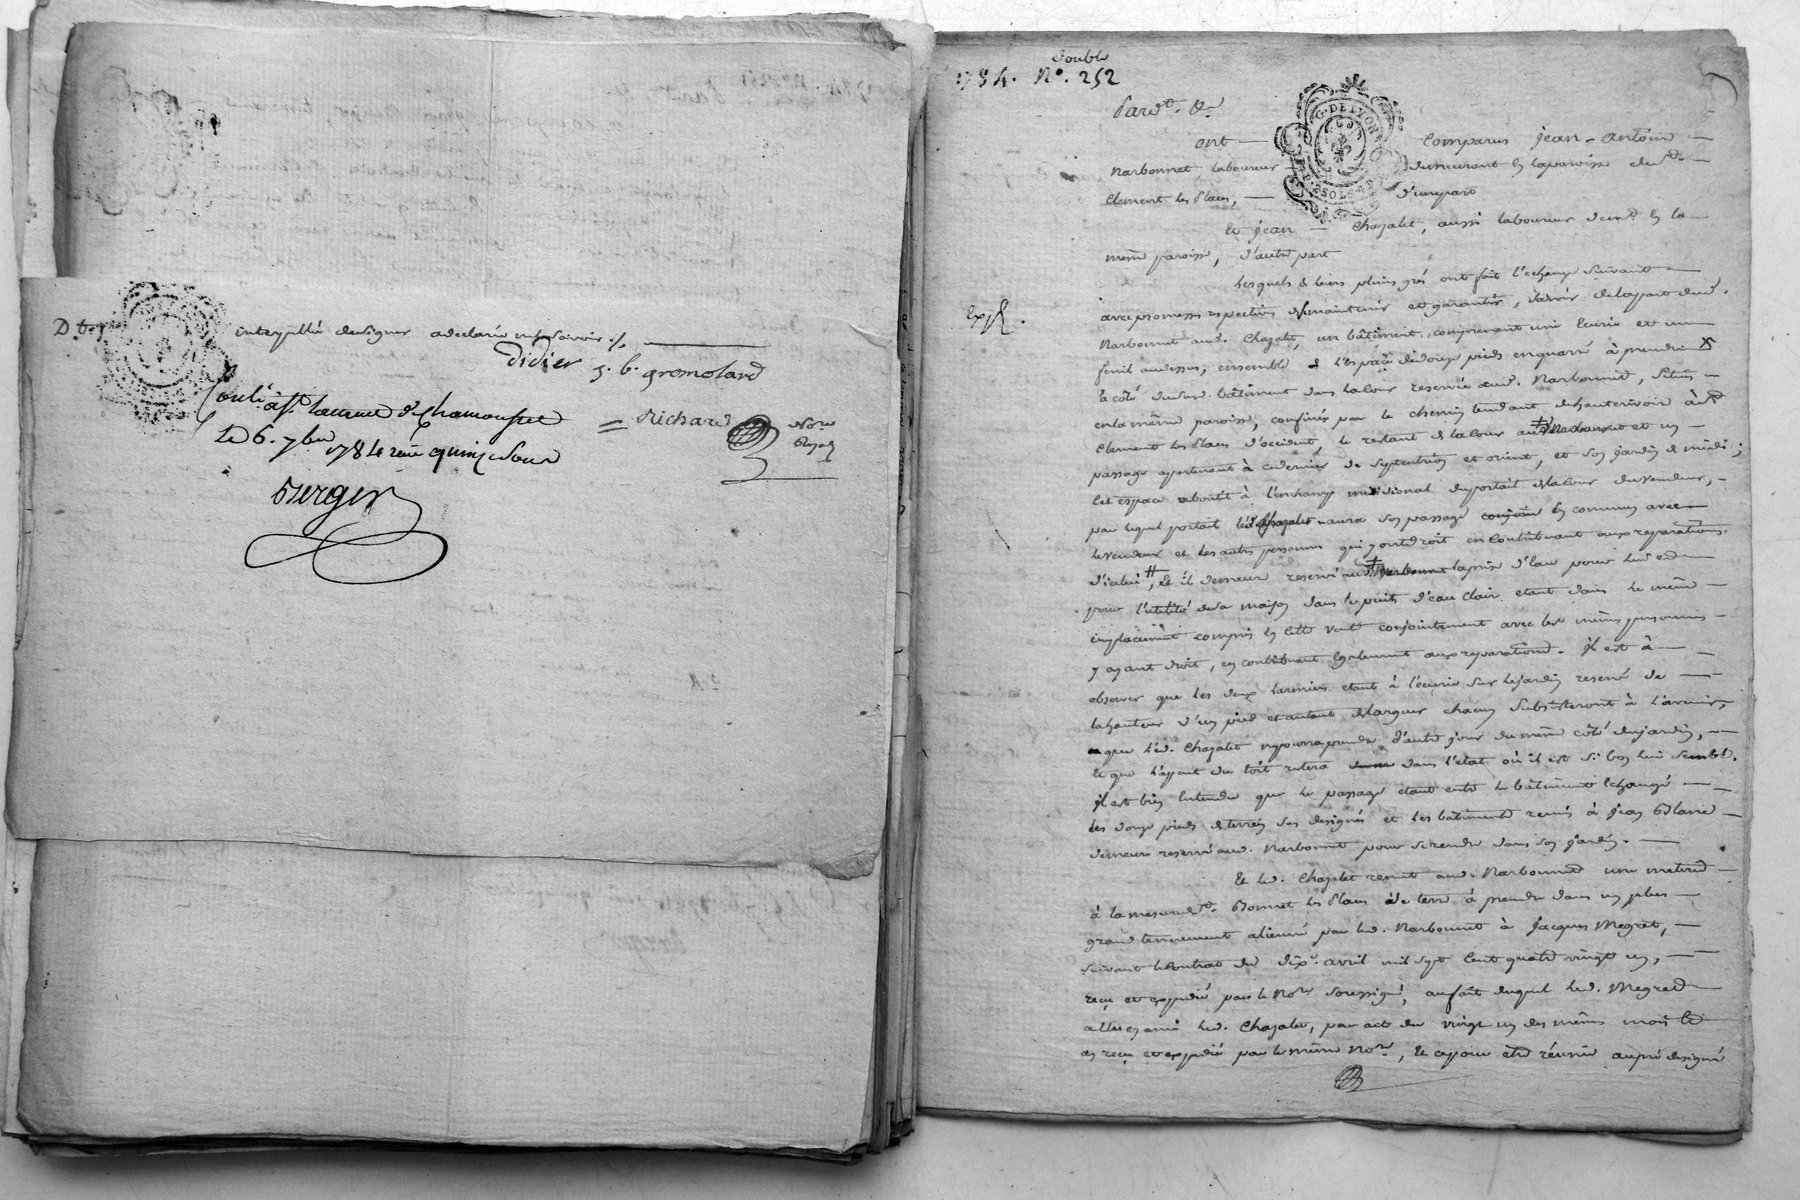 D.t
interpellé de signer a declaré ne savoir ./.
Didier J. B. Gromolard
Richard Nore Royal
Conlé à St. Laurent de Chamousset
Le 6. 7bre 1784 reçu quinze sous
Berger
double
1784. N°. 252
Pardt. &a
G. DE LYON
ont comparus Jean-Antoine
Narbonnet, laboureur demeurant en la paroisse de St.
Clement les Places, d'une part
Et Jean Chazalet, aussi laboureur demt. en la
même paroisse, d'autre part
Lesquels de leurs pleins grés ont fait l'echange suivant
Exp.
avec promesses respectives de maintenir et garantir, savoir de la part dud.
Narbonnet aud. Chazalet, un bâtiment, comprenant une écurie et un
fenil audessus, ensemble l'espace de douze pieds en quarré à prendre
à côté dud. bâtiment dans la cour reservée aud. Narbonnet, situés
en la même paroisse, confinés par le chemin tendant de hauterivoire à St.
Clement les Places d'occident, le restant de la cour aud. Narbonnet et un
passage appartenant à ce dernier de septentrion et orient, et son jardin de midi;
cet espace aboutit à l'enchant méridional du portail de la cour du vendeur,
par lequel portail led. Chazalet aura son passage en commun avec
le vendeur et les autres personnes qui y ont droit en contribuant aux reparations
d'icelui, et il demeure reservé aud. Narbonnet la prise d'eau pour lui et
pour l'utilité de sa maison dans le puits d'eau claire étant dans le même
emplacement compris en cette vente conjointement avec les mêmes personnes
y ayant droit, en contribuant également aux reparations. Il est à
observer que les deux larmiers étant à l'écurie sur le jardin reservé de
la hauteur d'un pied et autant de largeur chacun subsisteront à l'avenir,
que led. Chazalet ne pourra prendre d'autre jour du même côté du jardin,
et que l'appent du toit restera dans l'état où il est si bon lui semble.
Il est bien entendu que le passage étant entre le bâtiment échangé
les douze pieds de terrein sus designés et les bâtiments remis à Jean Blanc
demeure reservé aud. Narbonnet pour se rendre dans son jardin.
Et led. Chazalet remet aud. Narbonnet une meterée
à la mesure de St. Bonnet les Places de terre à prendre dans un plus
grand tennement aliené par led. Narbonnet à Jacques Megret,
suivant le contrat du dix avril mil sept cent quatre vingt un,
reçu et expedié par le Nore. soussigné, au fait duquel led. Megret
a elu en ami led. Chazalet, par acte du vingt un des mêmes mois et
an reçu et expedié par le même Nore., et la piece être réunie au pré designé